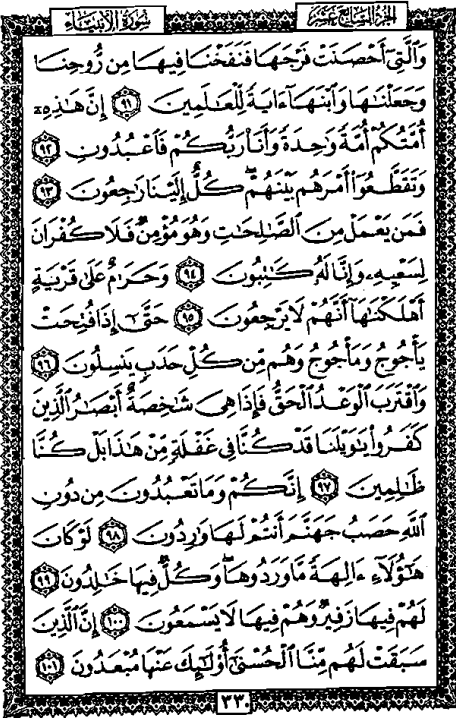 الجزء السابع عشر
سورة الأنبياء
وَالَّتِي أَحْصَنَتْ فَرْجَهَا فَنَفَخْنَا فِيهَا مِن رُّوحِنَا
وَجَعَلْنَاهَا وَابْنَهَا آيَةً لِّلْعَالَمِينَ ٩١ إِنَّ هَٰذِهِ
أُمَّتُكُمْ أُمَّةً وَاحِدَةً وَأَنَا رَبُّكُمْ فَاعْبُدُونِ ٩٢
وَتَقَطَّعُوا أَمْرَهُم بَيْنَهُمْ كُلٌّ إِلَيْنَا رَاجِعُونَ ٩٣
فَمَن يَعْمَلْ مِنَ الصَّالِحَاتِ وَهُوَ مُؤْمِنٌ فَلَا كُفْرَانَ
لِسَعْيِهِ وَإِنَّا لَهُ كَاتِبُونَ ٩٤ وَحَرَامٌ عَلَىٰ قَرْيَةٍ
أَهْلَكْنَاهَا أَنَّهُمْ لَا يَرْجِعُونَ ٩٥ حَتَّىٰ إِذَا فُتِحَتْ
يَأْجُوجُ وَمَأْجُوجُ وَهُم مِّن كُلِّ حَدَبٍ يَنسِلُونَ ٩٦
وَاقْتَرَبَ الْوَعْدُ الْحَقُّ فَإِذَا هِيَ شَاخِصَةٌ أَبْصَارُ الَّذِينَ
كَفَرُوا يَا وَيْلَنَا قَدْ كُنَّا فِي غَفْلَةٍ مِّنْ هَٰذَا بَلْ كُنَّا
ظَالِمِينَ ٩٧ إِنَّكُمْ وَمَا تَعْبُدُونَ مِن دُونِ
اللَّهِ حَصَبُ جَهَنَّمَ أَنتُمْ لَهَا وَارِدُونَ ٩٨ لَوْ كَانَ
هَٰؤُلَاءِ آلِهَةً مَّا وَرَدُوهَا وَكُلٌّ فِيهَا خَالِدُونَ ٩٩
لَهُمْ فِيهَا زَفِيرٌ وَهُمْ فِيهَا لَا يَسْمَعُونَ ١٠٠ إِنَّ الَّذِينَ
سَبَقَتْ لَهُم مِّنَّا الْحُسْنَىٰ أُولَٰئِكَ عَنْهَا مُبْعَدُونَ ١٠١
٣٣٠